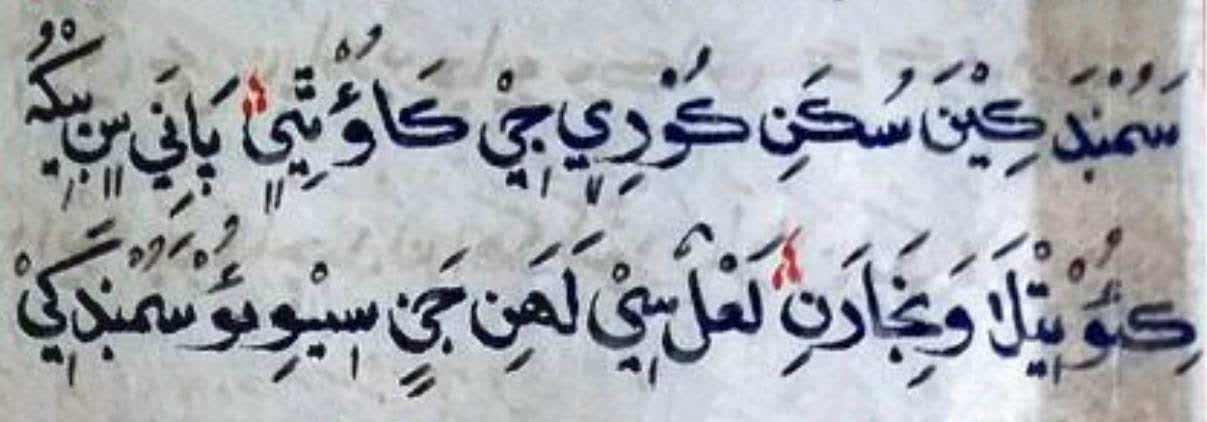 سَمُنْبَدَ كِيْنَ سُكَنِ كُوْرِيِ جِيْ كَاؤُتِيِ پَانِي سِنِ بِيْكُهُ
كِئُوْ بِيْتِلَا وَنجَارَنِ لَعْلَ سِيْ لَهَنِ جَيٍ سِيْوِئُوْ سَمُنْبَدِ كِيْ